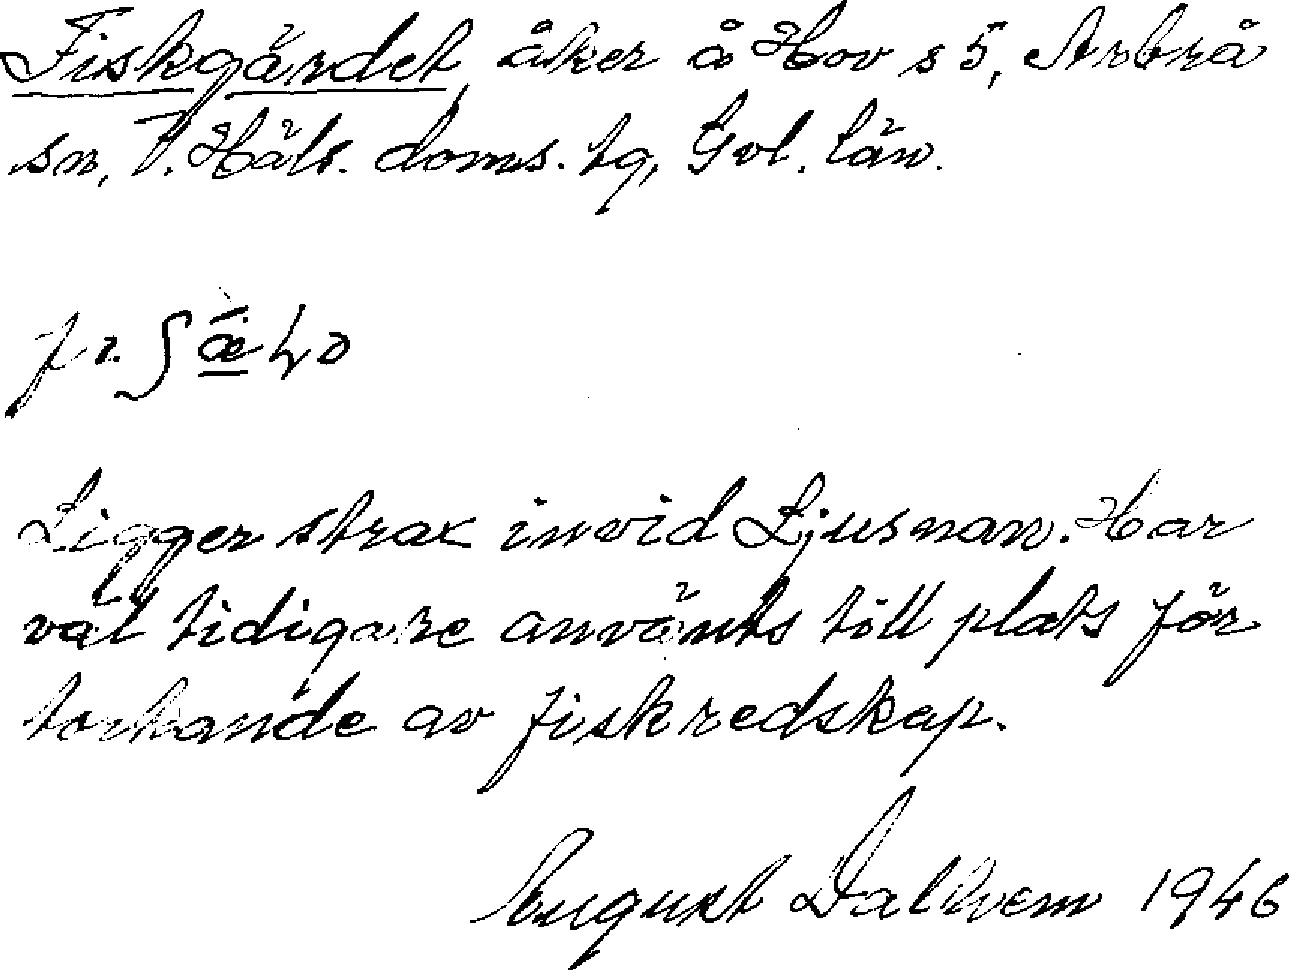 Fiskgärdet, åker å Hov s 5, Arbrå
sn, V. Häls. doms. tg, Gvl. län.
Ligger strax invid Ljusnan. Har
väl tidigare använts till plats för
torkande av fiskredskap.
August Dalkvem 1946